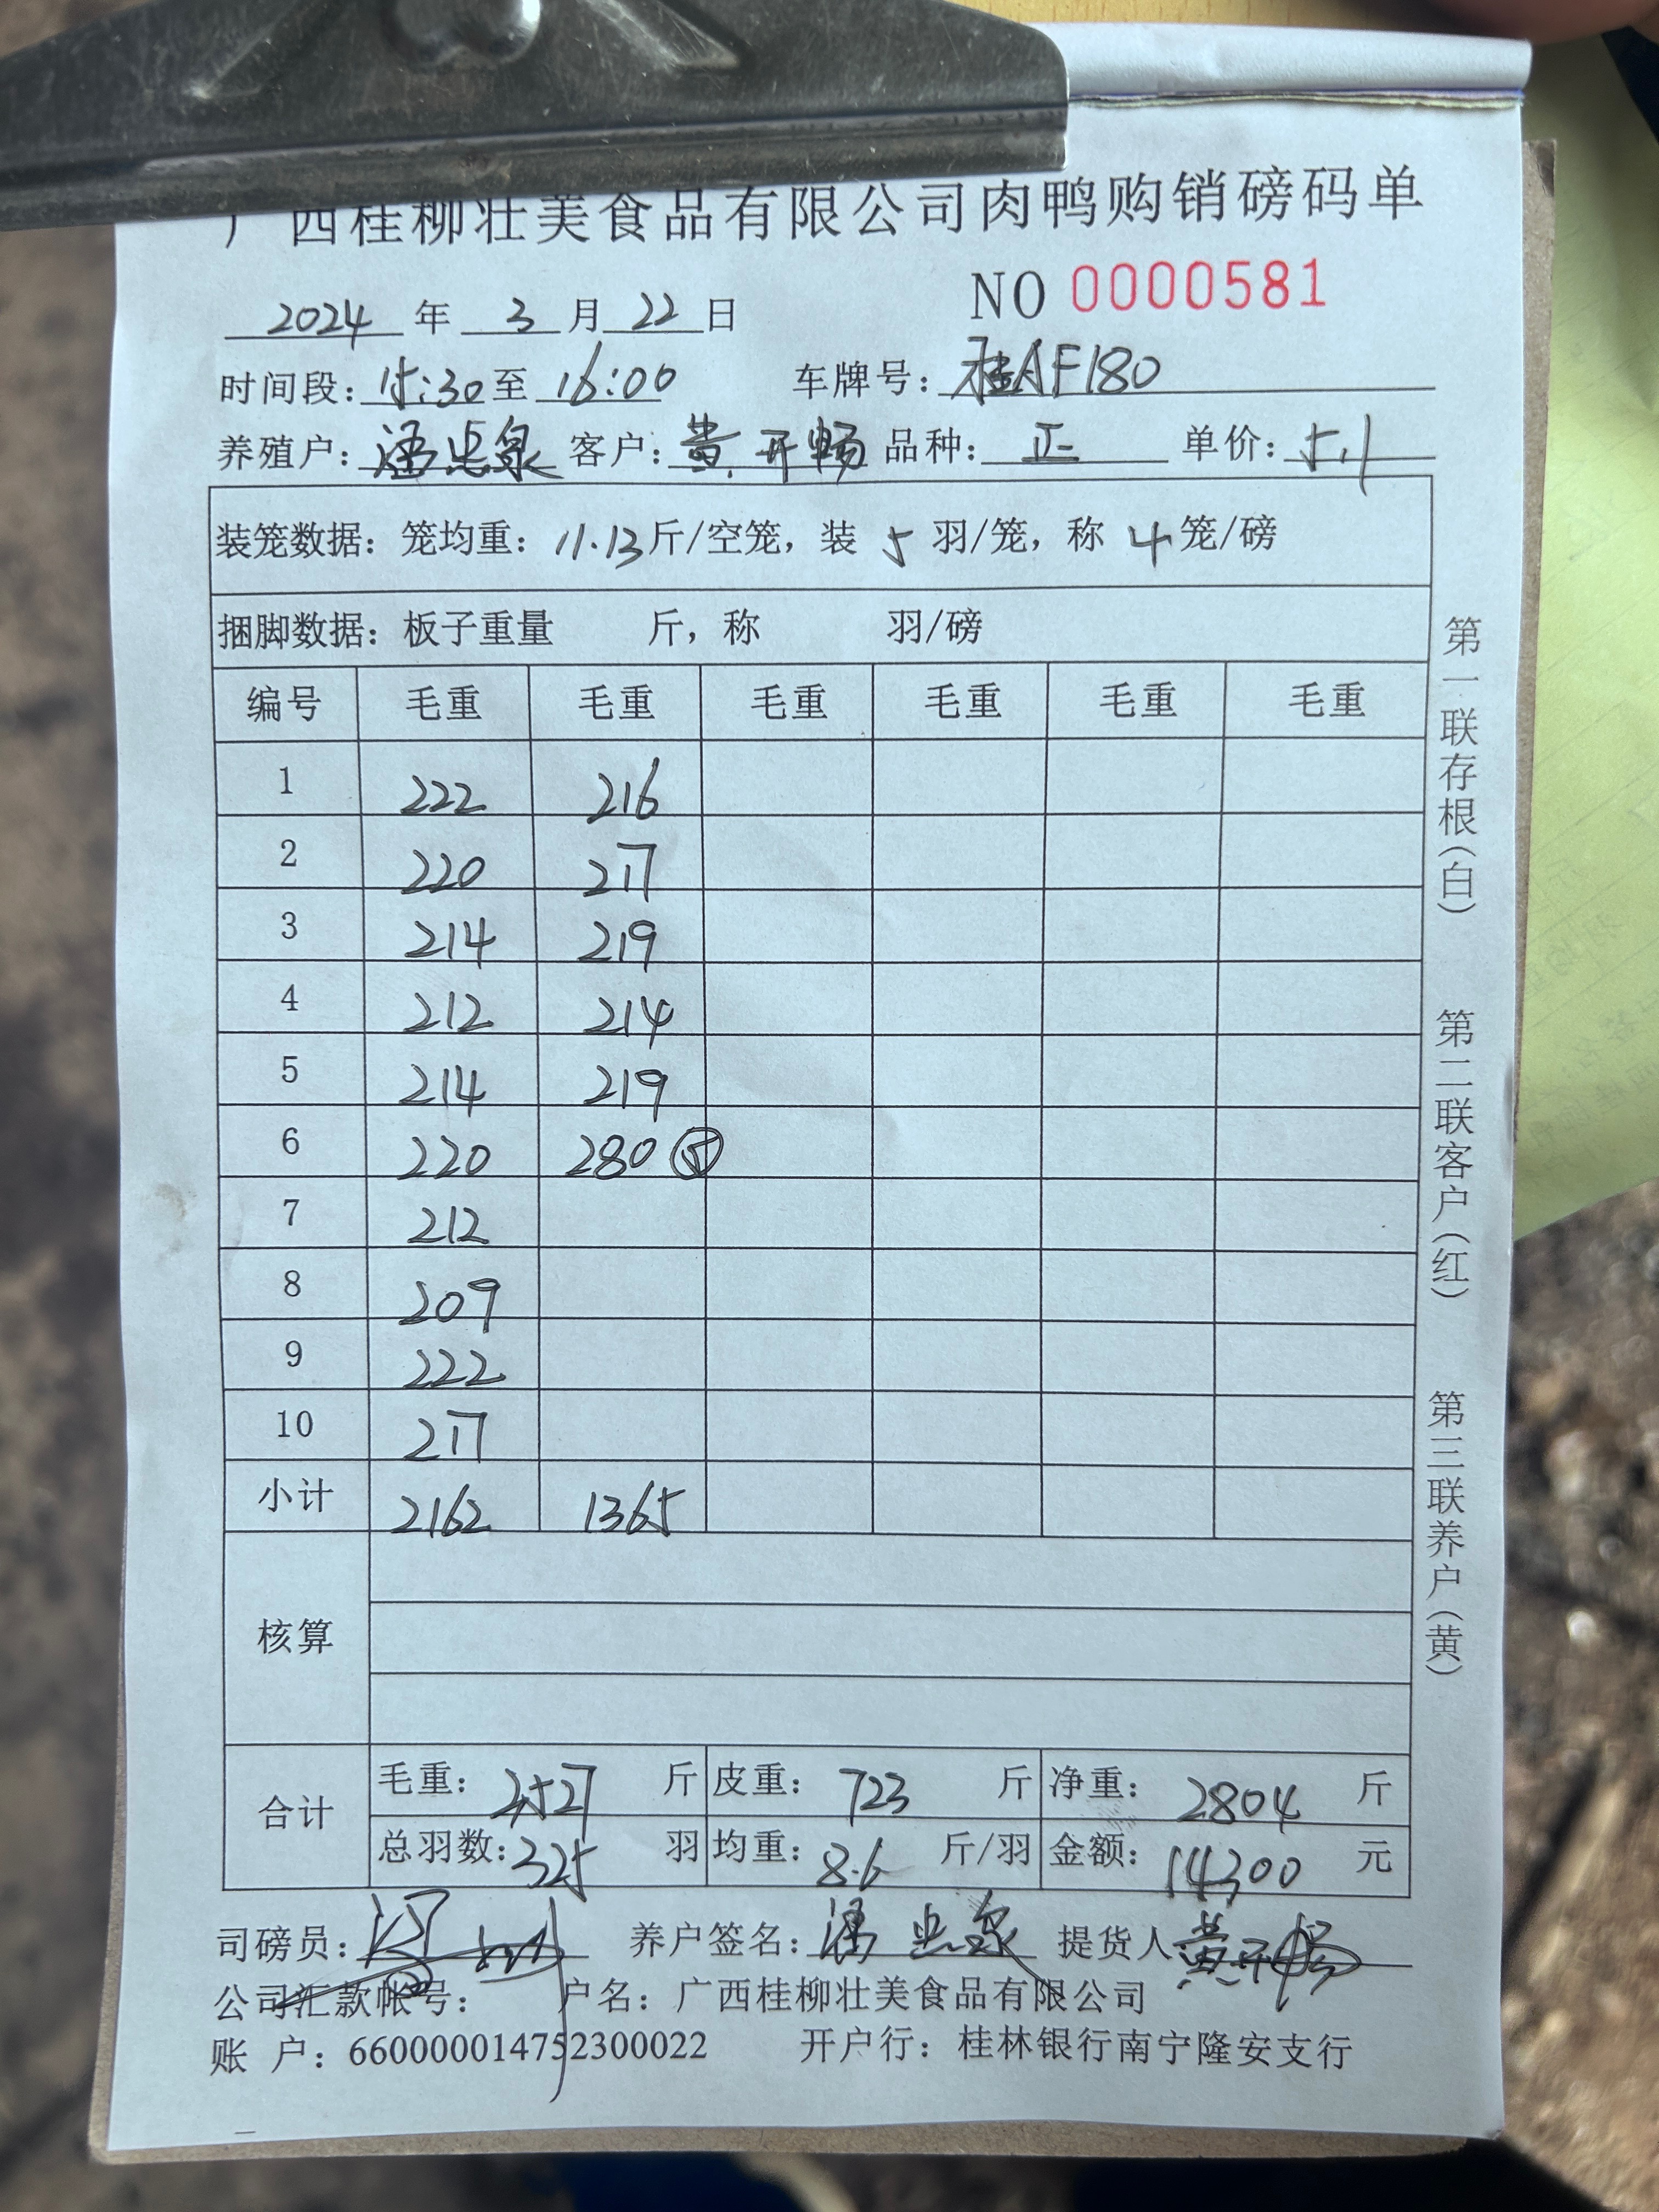 广西桂柳壮美食品有限公司肉鸭购销磅码单
NO 0000581
2024 年 3 月 22 日
时间段: 15:30 至 16:00 车牌号: 桂AF180
养殖户: 潘忠泉 客户: 黄开畅 品种: 正 单价: 5.1
装笼数据: 笼均重: 11.13 斤/空笼, 装 5 羽/笼, 称 4 笼/磅
捆脚数据: 板子重量 斤, 称 羽/磅
编号 毛重 毛重 毛重 毛重 毛重 毛重
1 222 216
2 220 217
3 214 219
4 212 214
5 214 219
6 220 280 ⑤
7 212
8 209
9 222
10 217
小计 2162 1365
核算
合计 毛重: 3527 斤 皮重: 723 斤 净重: 2804 斤
总羽数: 325 羽 均重: 8.6 斤/羽 金额: 14300 元
司磅员: 养户签名: 潘忠泉 提货人 黄开畅
公司汇款帐号: 户名: 广西桂柳壮美食品有限公司
账 户: 660000014752300022 开户行: 桂林银行南宁隆安支行
第一联存根(白) 第二联客户(红) 第三联养户(黄)